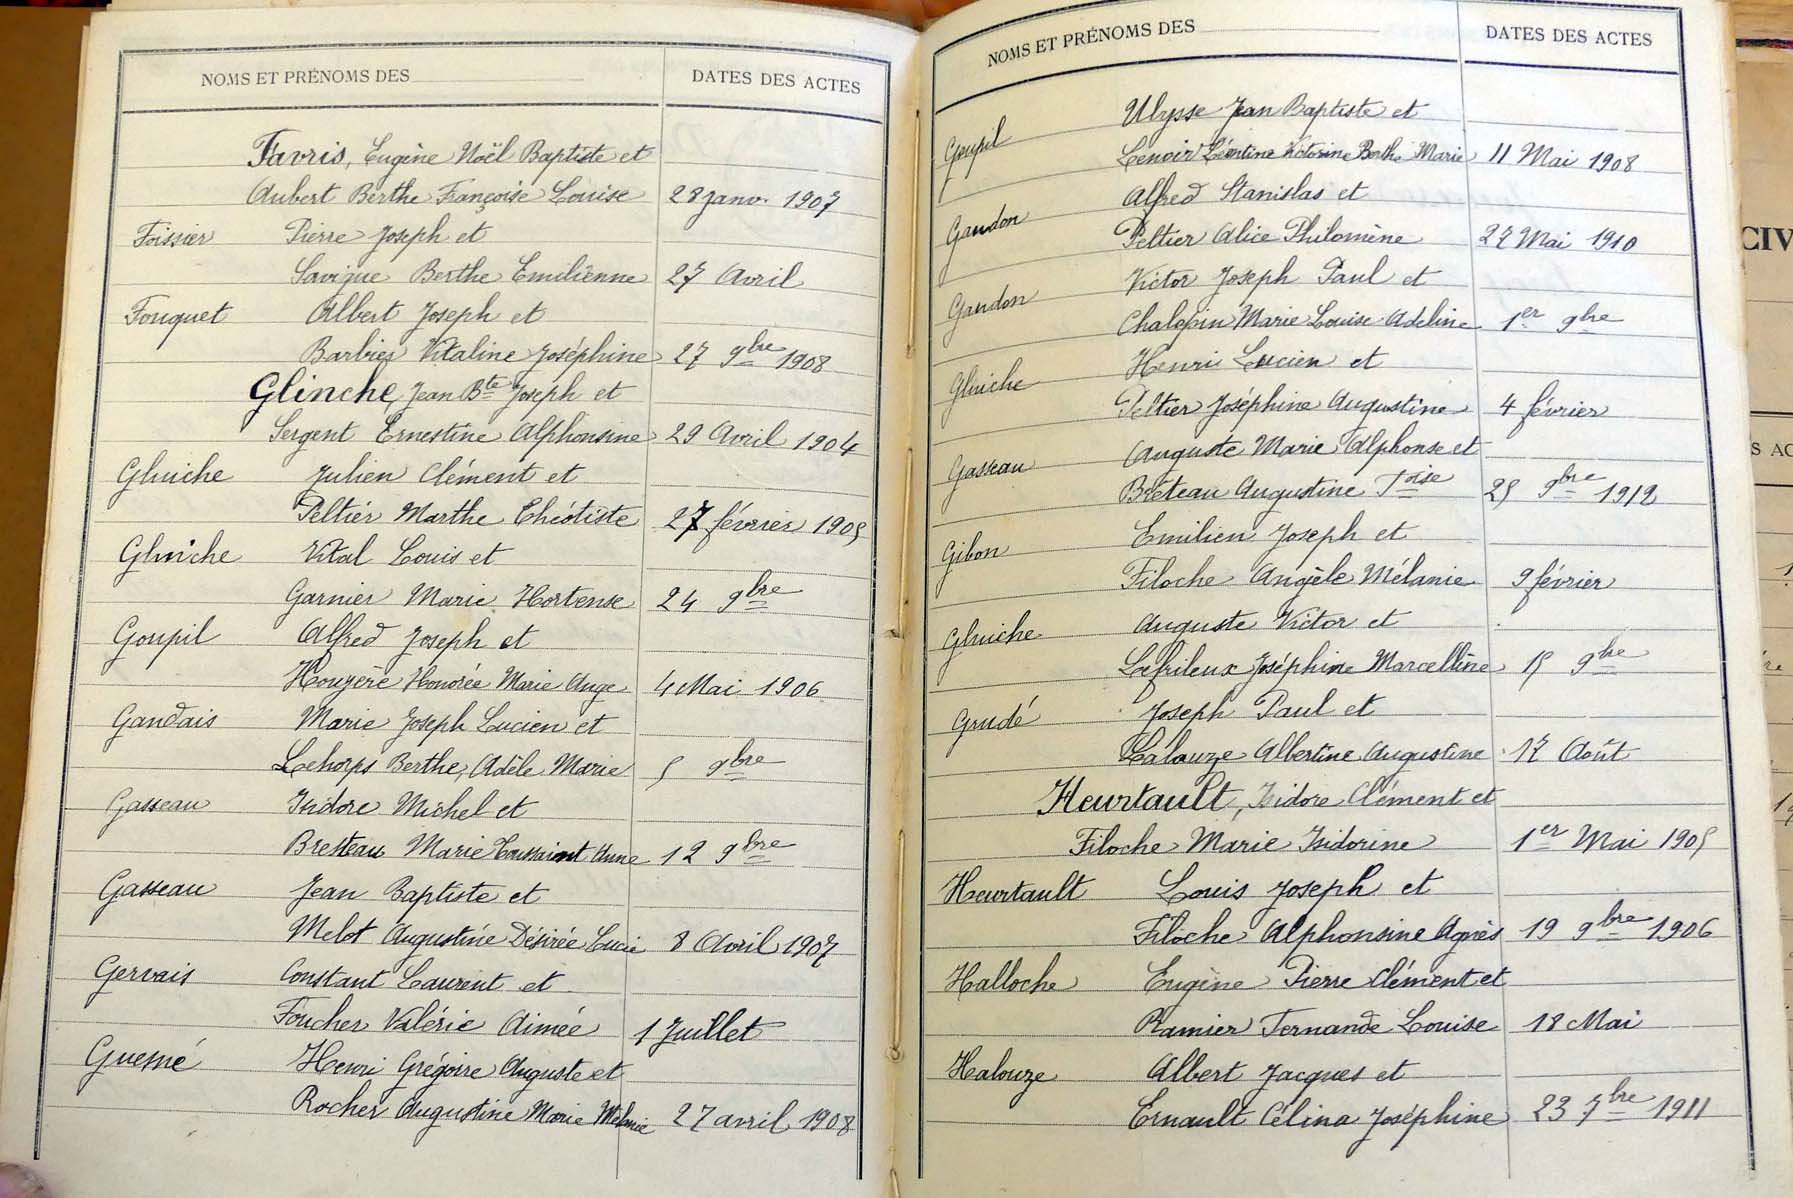 NOMS ET PRÉNOMS DES DATES DES ACTES
Favris, Eugène Noël Baptiste et
Aubert Berthe Françoise Louise 28 janv. 1907
Foissier Pierre Joseph et
Savigne Berthe Emilienne 27 Avril
Fouquet Albert Joseph et
Barbier Vitaline Joséphine 27 9bre 1908
Glinche, Jean Bte Joseph et
Sergent Ernestine Alphonsine 29 Avril 1904
Gluiche Julien Clément et
Peltier Marthe Théotiste 27 février 1905
Gluiche Vital Louis et
Garnier Marie Hortense 24 9bre
Goupil Alfred Joseph et
Houyère Honorée Marie Ange 4 Mai 1906
Gandais Marie Joseph Lucien et
Lehorps Berthe, Adèle Marie 5 9bre
Gasseau Isidore Michel et
Bresteau Marie Toussaint Anne 12 9bre
Gasseau Jean Baptiste et
Melot Augustine Désirée Lucie 8 Avril 1907
Gervais Constant Laurent et
Foucher Valérie Aimée 1 Juillet
Guesné Henri Grégoire Auguste et
Rocher Augustine Marie Mélanie 27 avril 1908
NOMS ET PRÉNOMS DES DATES DES ACTES
Goupil Ulysse Jean Baptiste et
Lenoir Léontine Victorine Berthe Marie 11 Mai 1908
Gaudon Alfred Stanislas et
Peltier Alice Philomène 27 Mai 1910
Gaudon Victor Joseph Paul et
Chalopin Marie Louise Adeline 1er 9bre
Gluiche Henri Lucien et
Peltier Joséphine Augustine 4 février
Gasseau Auguste Marie Alphonse et
Bréteau Augustine Foise 25 9bre 1912
Gibon Emilien Joseph et
Filoche Angèle Mélanie 9 février
Gluiche Auguste Victor et
Lefrileux Joséphine Marcelline 15 9bre
Grudé Joseph Paul et
Lalouze Albertine Augustine 17 Août
Heurtault, Isidore Clément et
Filoche Marie Isidorine 1er Mai 1905
Heurtault Louis Joseph et
Filoche Alphonsine Agnès 19 9bre 1906
Halloche Eugène Pierre Clément et
Ramier Fernande Louise 18 Mai
Halouze Albert Jacques et
Ernault Célina Joséphine 23 7bre 1911
CIV
S AC